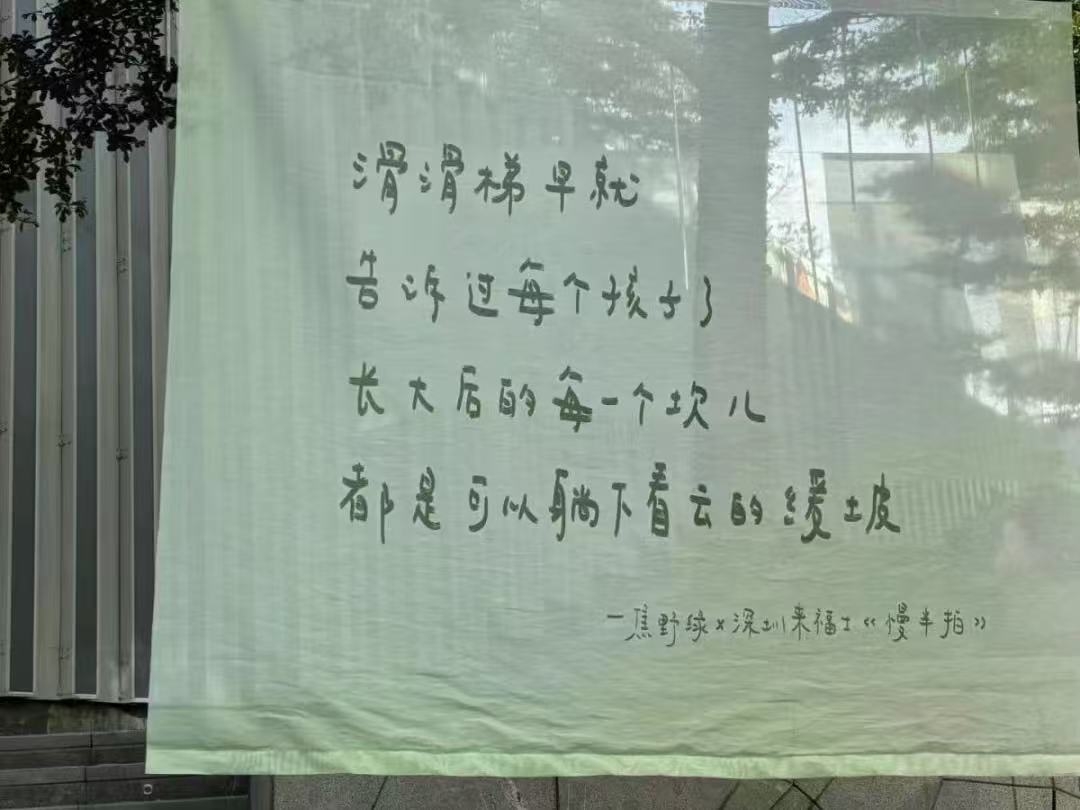 滑滑梯早就
告诉过每个孩子了
长大后的每一个坎儿
都是可以躺下看云的缓坡
一焦野绿×深圳来福士《慢半拍》